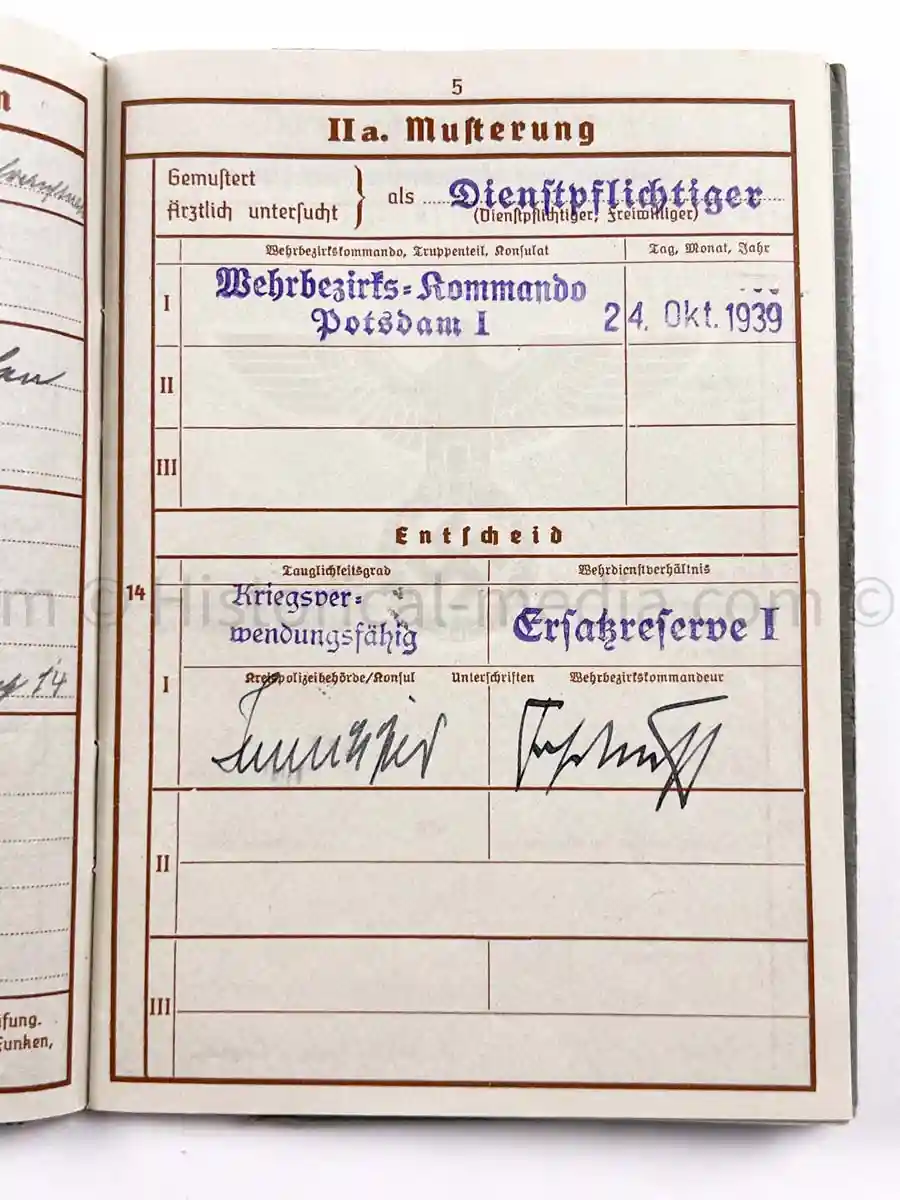 5
IIa. Muſterung
Gemuſtert
Ärztlich unterſucht
als Dienſtpflichtiger
(Dienſtpflichtiger, Freiwilliger)
Wehrbezirkskommando, Truppenteil, Konſulat
Tag, Monat, Jahr
I
Wehrbezirks=Kommando
Potsdam I
24. Okt. 1939
II
III
Entſcheid
Tauglichkeitsgrad
Wehrdienſtverhältnis
14
Kriegsver=
wendungsfähig
Erſatzreſerve I
I
Kreispolizeibehörde/Konſul Unterſchriften Wehrbezirkskommandeur
II
III
n
14
fung.
Funken,
m © Historical-media.com ©